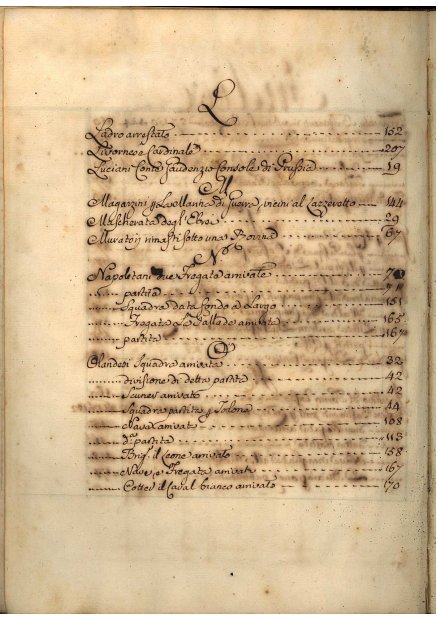 L
Ladro arrestato 152
Livornese Cardinale 207
Luciani Conte Gaudenzio Console di Prussia 19
M
Magazzini p la Manna di Guerra, vicini al Lazzeretto 144
Mascherata degli Ebrei 29
Muratori rimasti sotto una Rovina 67
N
Napoletani due Fregate arrivate
partita
Squadra data fondo a Largo 151
Fregata La Pallade arrivata 165
partita 167
O
Olandesi Squadra arrivata 32
divisione di detta partita 42
arrivato 42
Squadra partita p Tolone 44
Nave arrivata 108
da partita 113
Brig. il Leone arrivato 158
Nave, e Fregata arrivate 167
Cotter il Caval bianco arrivato 170